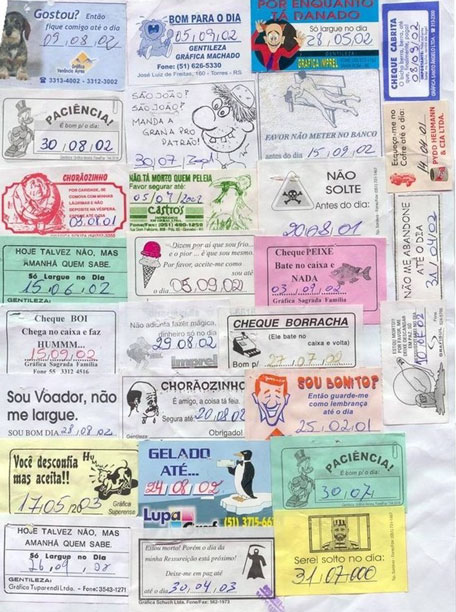 Gostou? Então
fique comigo até o dia
09.08.02
Gráfica
Venâncio Aires
3313-4002 - 3312-3002
BOM PARA O DIA
05/09/02
GENTILEZA
GRÁFICA MACHADO
Fone: (51) 626-5330
José Luiz de Freitas, 160 - Torres - RS
POR ENQUANTO
TÁ DANADO
Só largue no dia
28/05/02
GRÁFICA IMPREL
CHEQUE CABRITA
08/09/02
PACIÊNCIA!
É bom p/ o dia:
30/08/02
SÃO JOÃO?
SÃO JOÃO?
MANDA A
GRANA PRO
PATRÃO!
30/07
FAVOR NÃO METER NO BANCO
antes do dia 15.09.02
Esqueça-me no
Cofre até o dia:
14.04.01
PYDO NEUMANN
& CIA LTDA.
CHORÃOZINHO
POR CARIDADE, SE
COMOVA COM MINHAS
LÁGRIMAS E NÃO
DEPOSITA NA VÉSPERA.
NÃO TÁ MORTO QUEM PELEIA
Favor segurar até:
05/07/2002
CASTROS
Fone/Fax: (051) 480-1259
NÃO
SOLTE
Antes do dia:
20/08/01
NÃO ME ABANDONE
ATÉ O DIA
31/04/02
HOJE TALVEZ NÃO, MAS
AMANHÃ QUEM SABE.
Só Largue no Dia
15/06/02
GENTILEZA:
"Dizem por aí que sou frio..
e o pior ... é que sou mesmo.
Por favor, aceite-me como
sou até
05/09/02
Cheque PEIXE
Bate no caixa e
NADA
Gráfica Sagrada Família
Cheque BOI
Chega no caixa e faz
HUMMM...
15/09/02
Gráfica Sagrada Família
Fone 55 3312 4516
Não adianta fazer mágica,
dinheiro só no dia
29.08.02
Imprel
CHEQUE BORRACHA
(Ele bate no
caixa e volta)
Bom p/ 27/07/02
10/06/02
Sou Voador, não
me largue.
SOU BOM DIA 28/08/02
CHORÃOZINHO
É amigo, a coisa tá feia.
Segura até: 20/08/02
Obrigado!
SOU BONITO?
Então guarde-me
como lembrança
até o dia
25/02/01
Você desconfia
mas aceita!!
17/05/2003
Gráfica
GELADO
ATÉ...
24/08/02
Lupa
Graf
(51) 3715-66
PACIÊNCIA!
É bom p/ o dia:
30/07/
HOJE TALVEZ NÃO, MAS
AMANHÃ QUEM SABE.
Só Largue no Dia
26/09/02
GENTILEZA:
Gráfica Tuparendi Ltda. - Fone: 3543-1271
Estou morto! Porém o dia da
minha Ressureição está próximo!
Deixe-me em paz
até 30/04/03
Gráfica Schuch Ltda. Fone/Fax: 562-1973
Serei solto no dia:
31/07/000